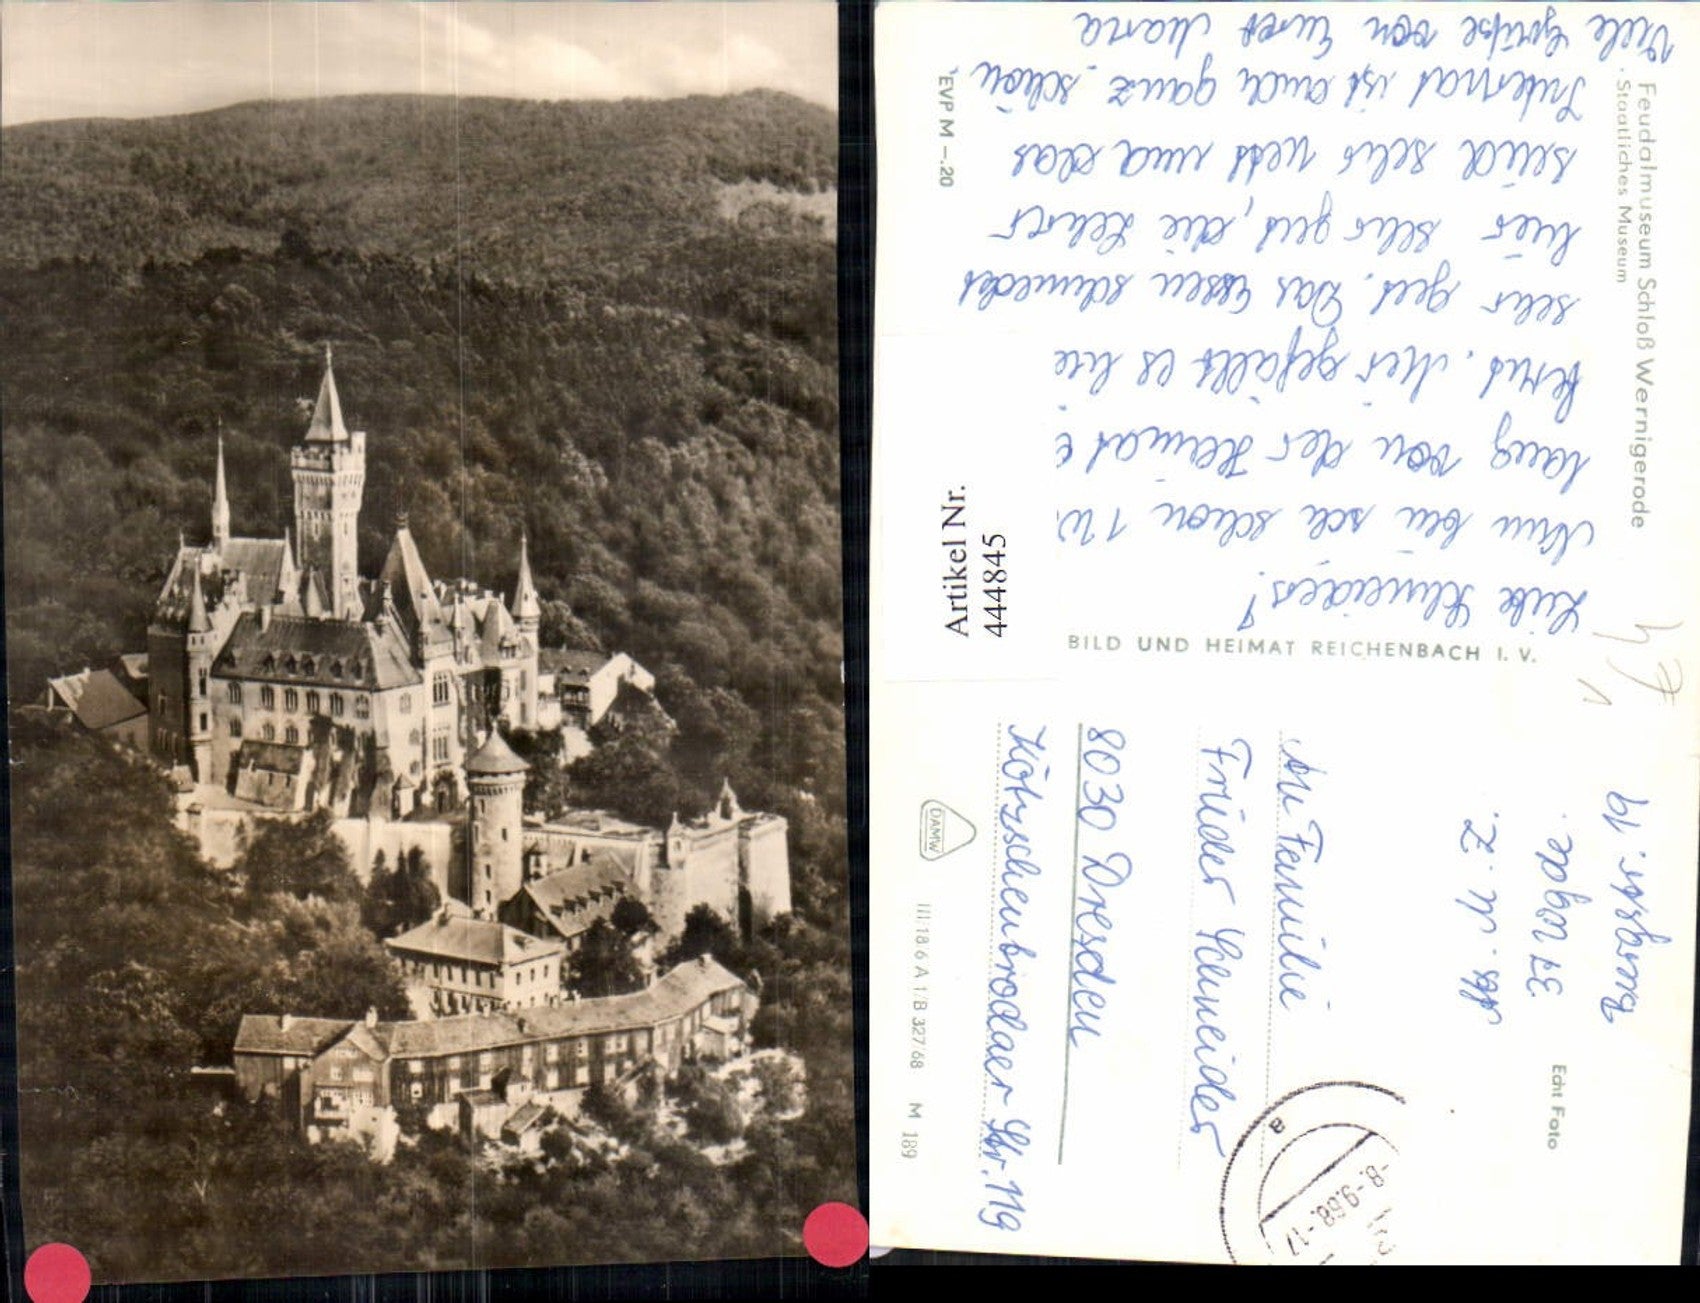 Feudalmuseum Schloß Wernigerode
· Staatliches Museum
Liebe Schneiders!
Nun bin ich schon 1 W
lang von der Heimat
fernt. Mir gefällt es hie
sehr gut. Das Essen schmeckt
hier sehr gut, die Lehrer
sind sehr nett und das
Internat ist auch ganz schön
Viele Grüße von Eurer Maria
EVP M –.20
Artikel Nr.
444845
BILD UND HEIMAT REICHENBACH I. V.
DAMW
III/18/6 A 1/B 327/68 M 189
Echt Foto
37 Wgde.
Burgstr. 19
a
-8.-9.68.-17
An Familie
Frieder Schneider
8030 Dresden
Kötzschenbrodaer Str. 119